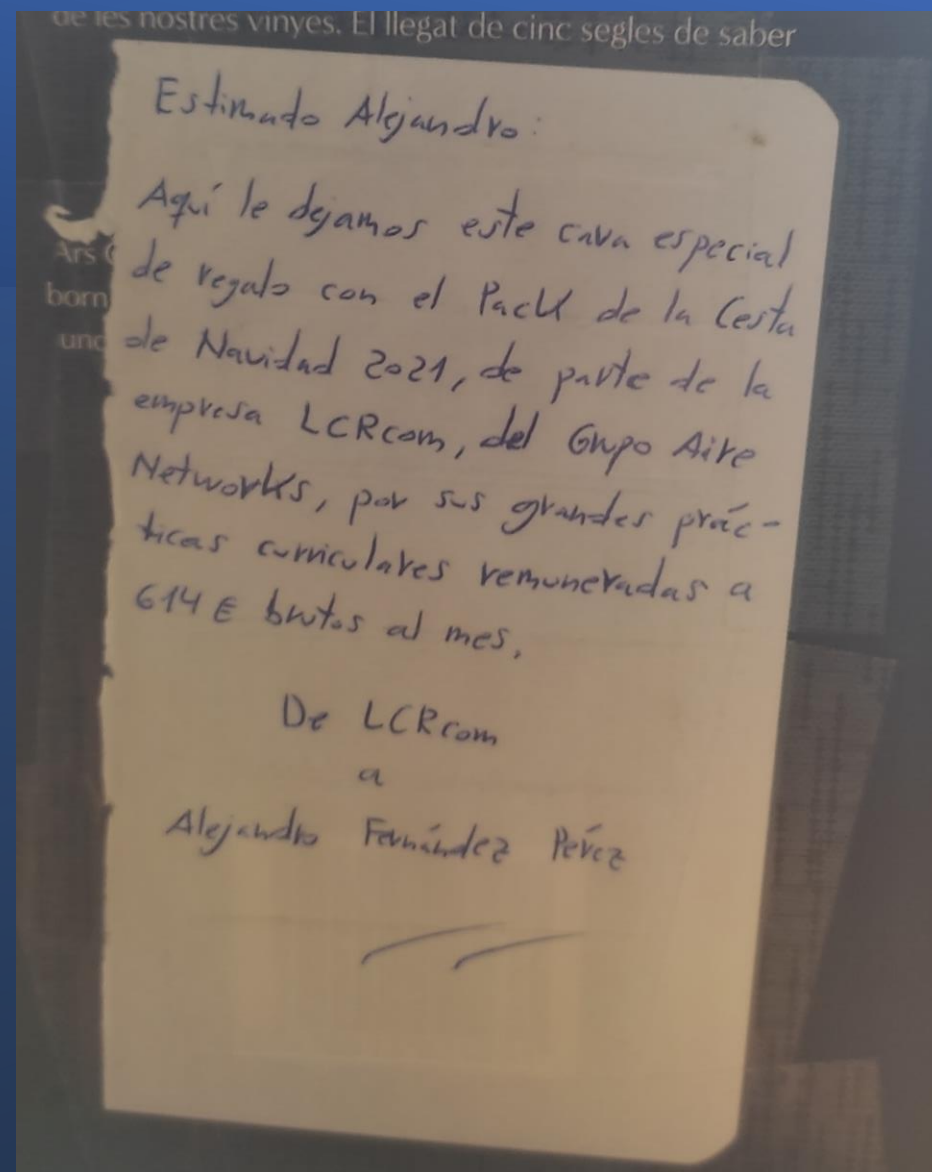 de les nostres vinyes. El llegat de cinc segles de saber
Estimado Alejandro:
Aquí le dejamos este cava especial
Ars
de regalo con el Pack de la Cesta
born
und
de Navidad 2021, de parte de la
empresa LCRcom, del Grupo Aire
Networks, por sus grandes prác-
ticas curriculares remuneradas a
614 € brutos al mes.
De LCRcom
a
Alejandro Fernández Pérez